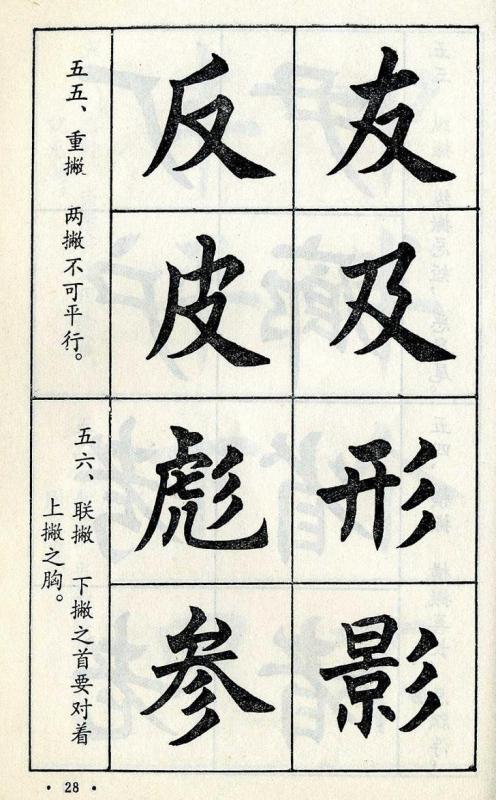 友
及
形
影
反
皮
彪
参
五五、重撇 两撇不可平行。
五六、联撇 下撇之首要对着
上撇之胸。
· 28 ·